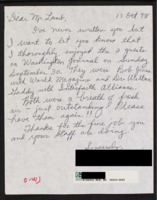 13 Oct 98
Dear Mr. Lamb,
I've never written you but
I want to let you know that
I thoroughly enjoyed the 2 guests
on Washington Journal on Sunday
September 20. They were Bob Jones
with World Magazine, and Dr. Welton
Gaddy with Interfaith Alliance.
Both were a breath of fresh
air - just outstanding! Please
have them again!!
Thanks for the fine job you
and your staff are doing.
Sincerely,